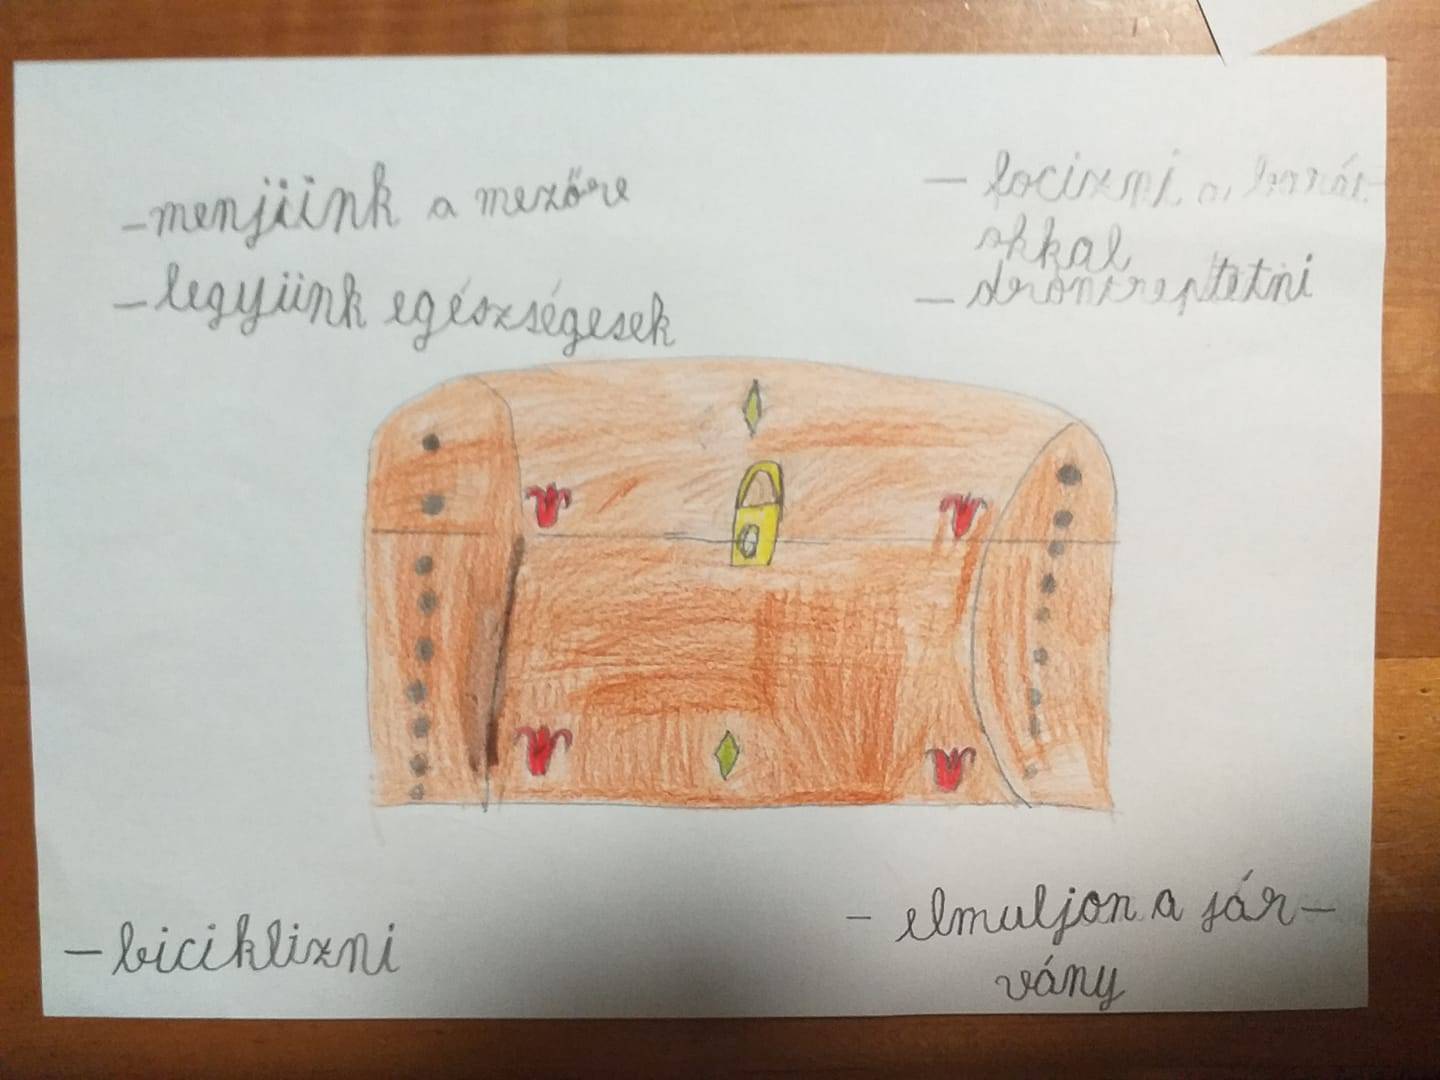 – menjünk a mezőre
– legyünk egészségesek
– focizni a barát-
okkal
– drónreptetni
– biciklizni
– elmuljon a jár-
vány